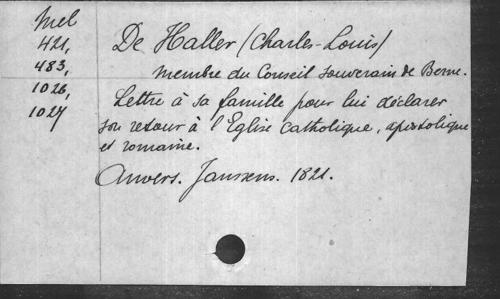 Mel
421,
483,
1026,
1027
De Haller (Charles-Louis)
membre du Conseil souverain de Berne.
Lettre à sa famille pour lui déclarer
son retour à l'Eglise catholique, apostolique
et romaine.
Anvers. Janssens. 1821.